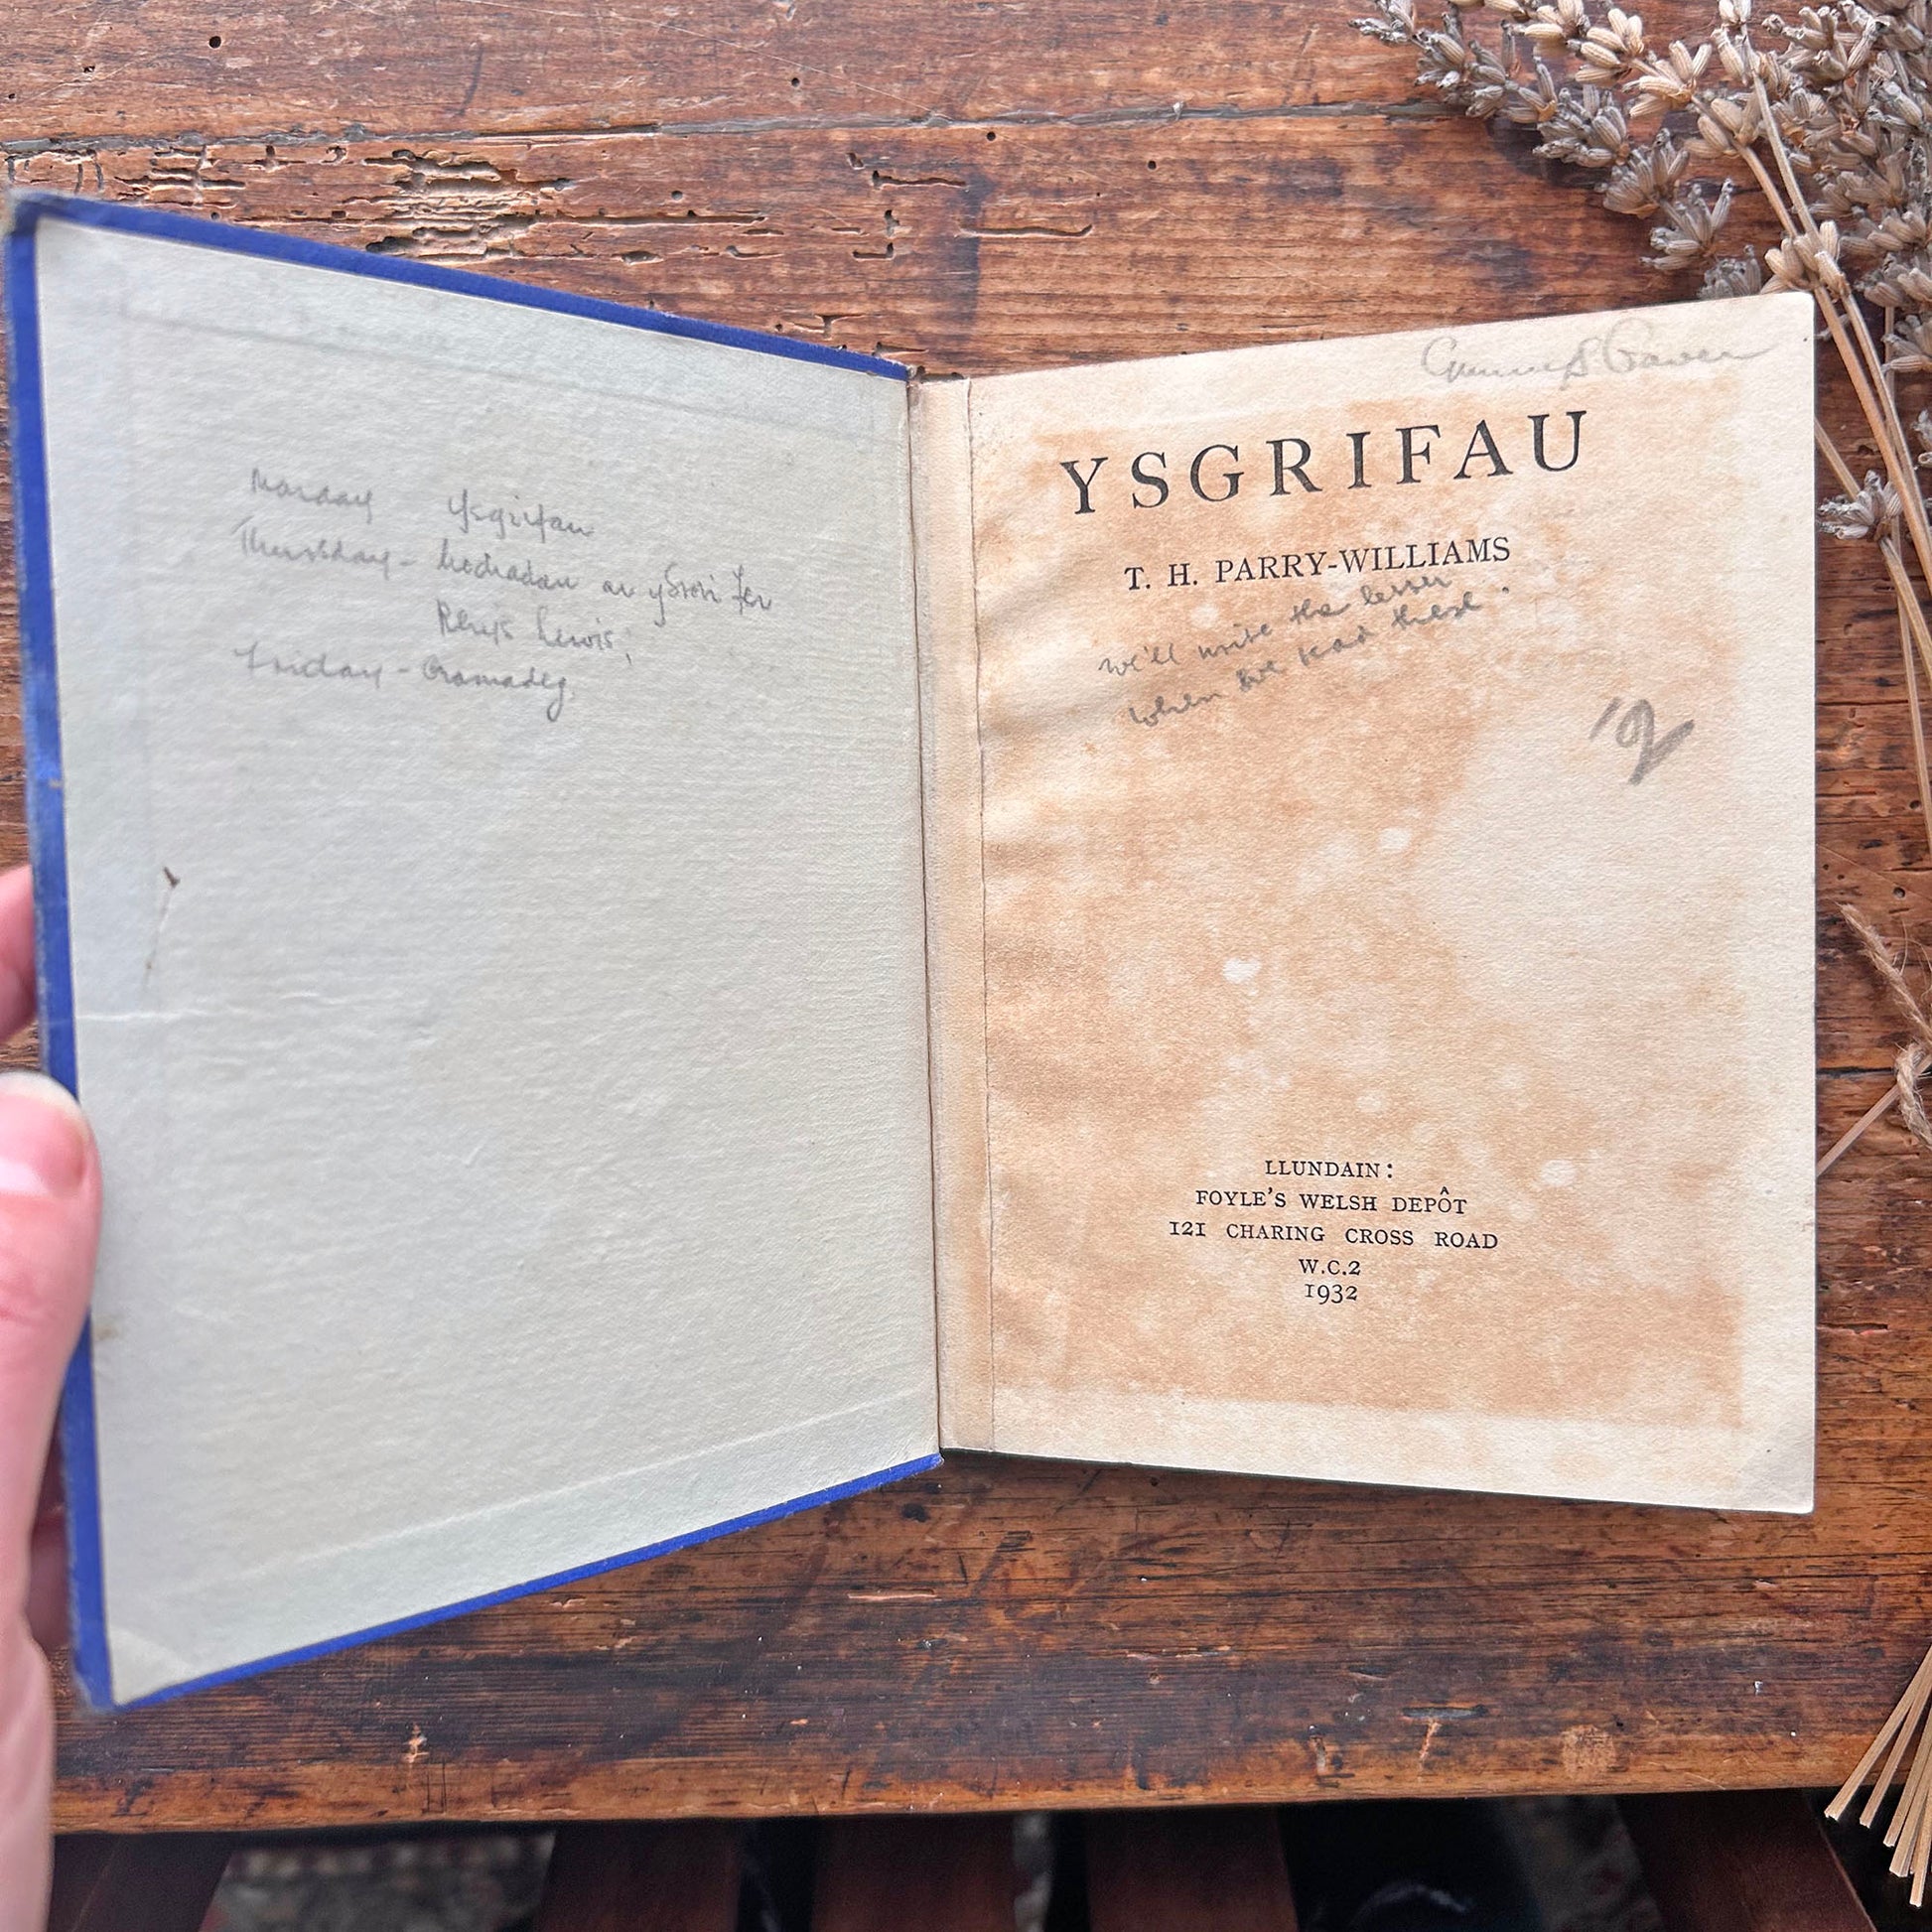 Monday Ysgrifau
Thursday - Nodiadau ar ystori fer
Rhys Lewis,
Friday - Gramadeg.
YSGRIFAU
T. H. PARRY-WILLIAMS
we'll write the lesser
when we read these.
LLUNDAIN:
FOYLE'S WELSH DEPÔT
121 CHARING CROSS ROAD
W.C.2
1932